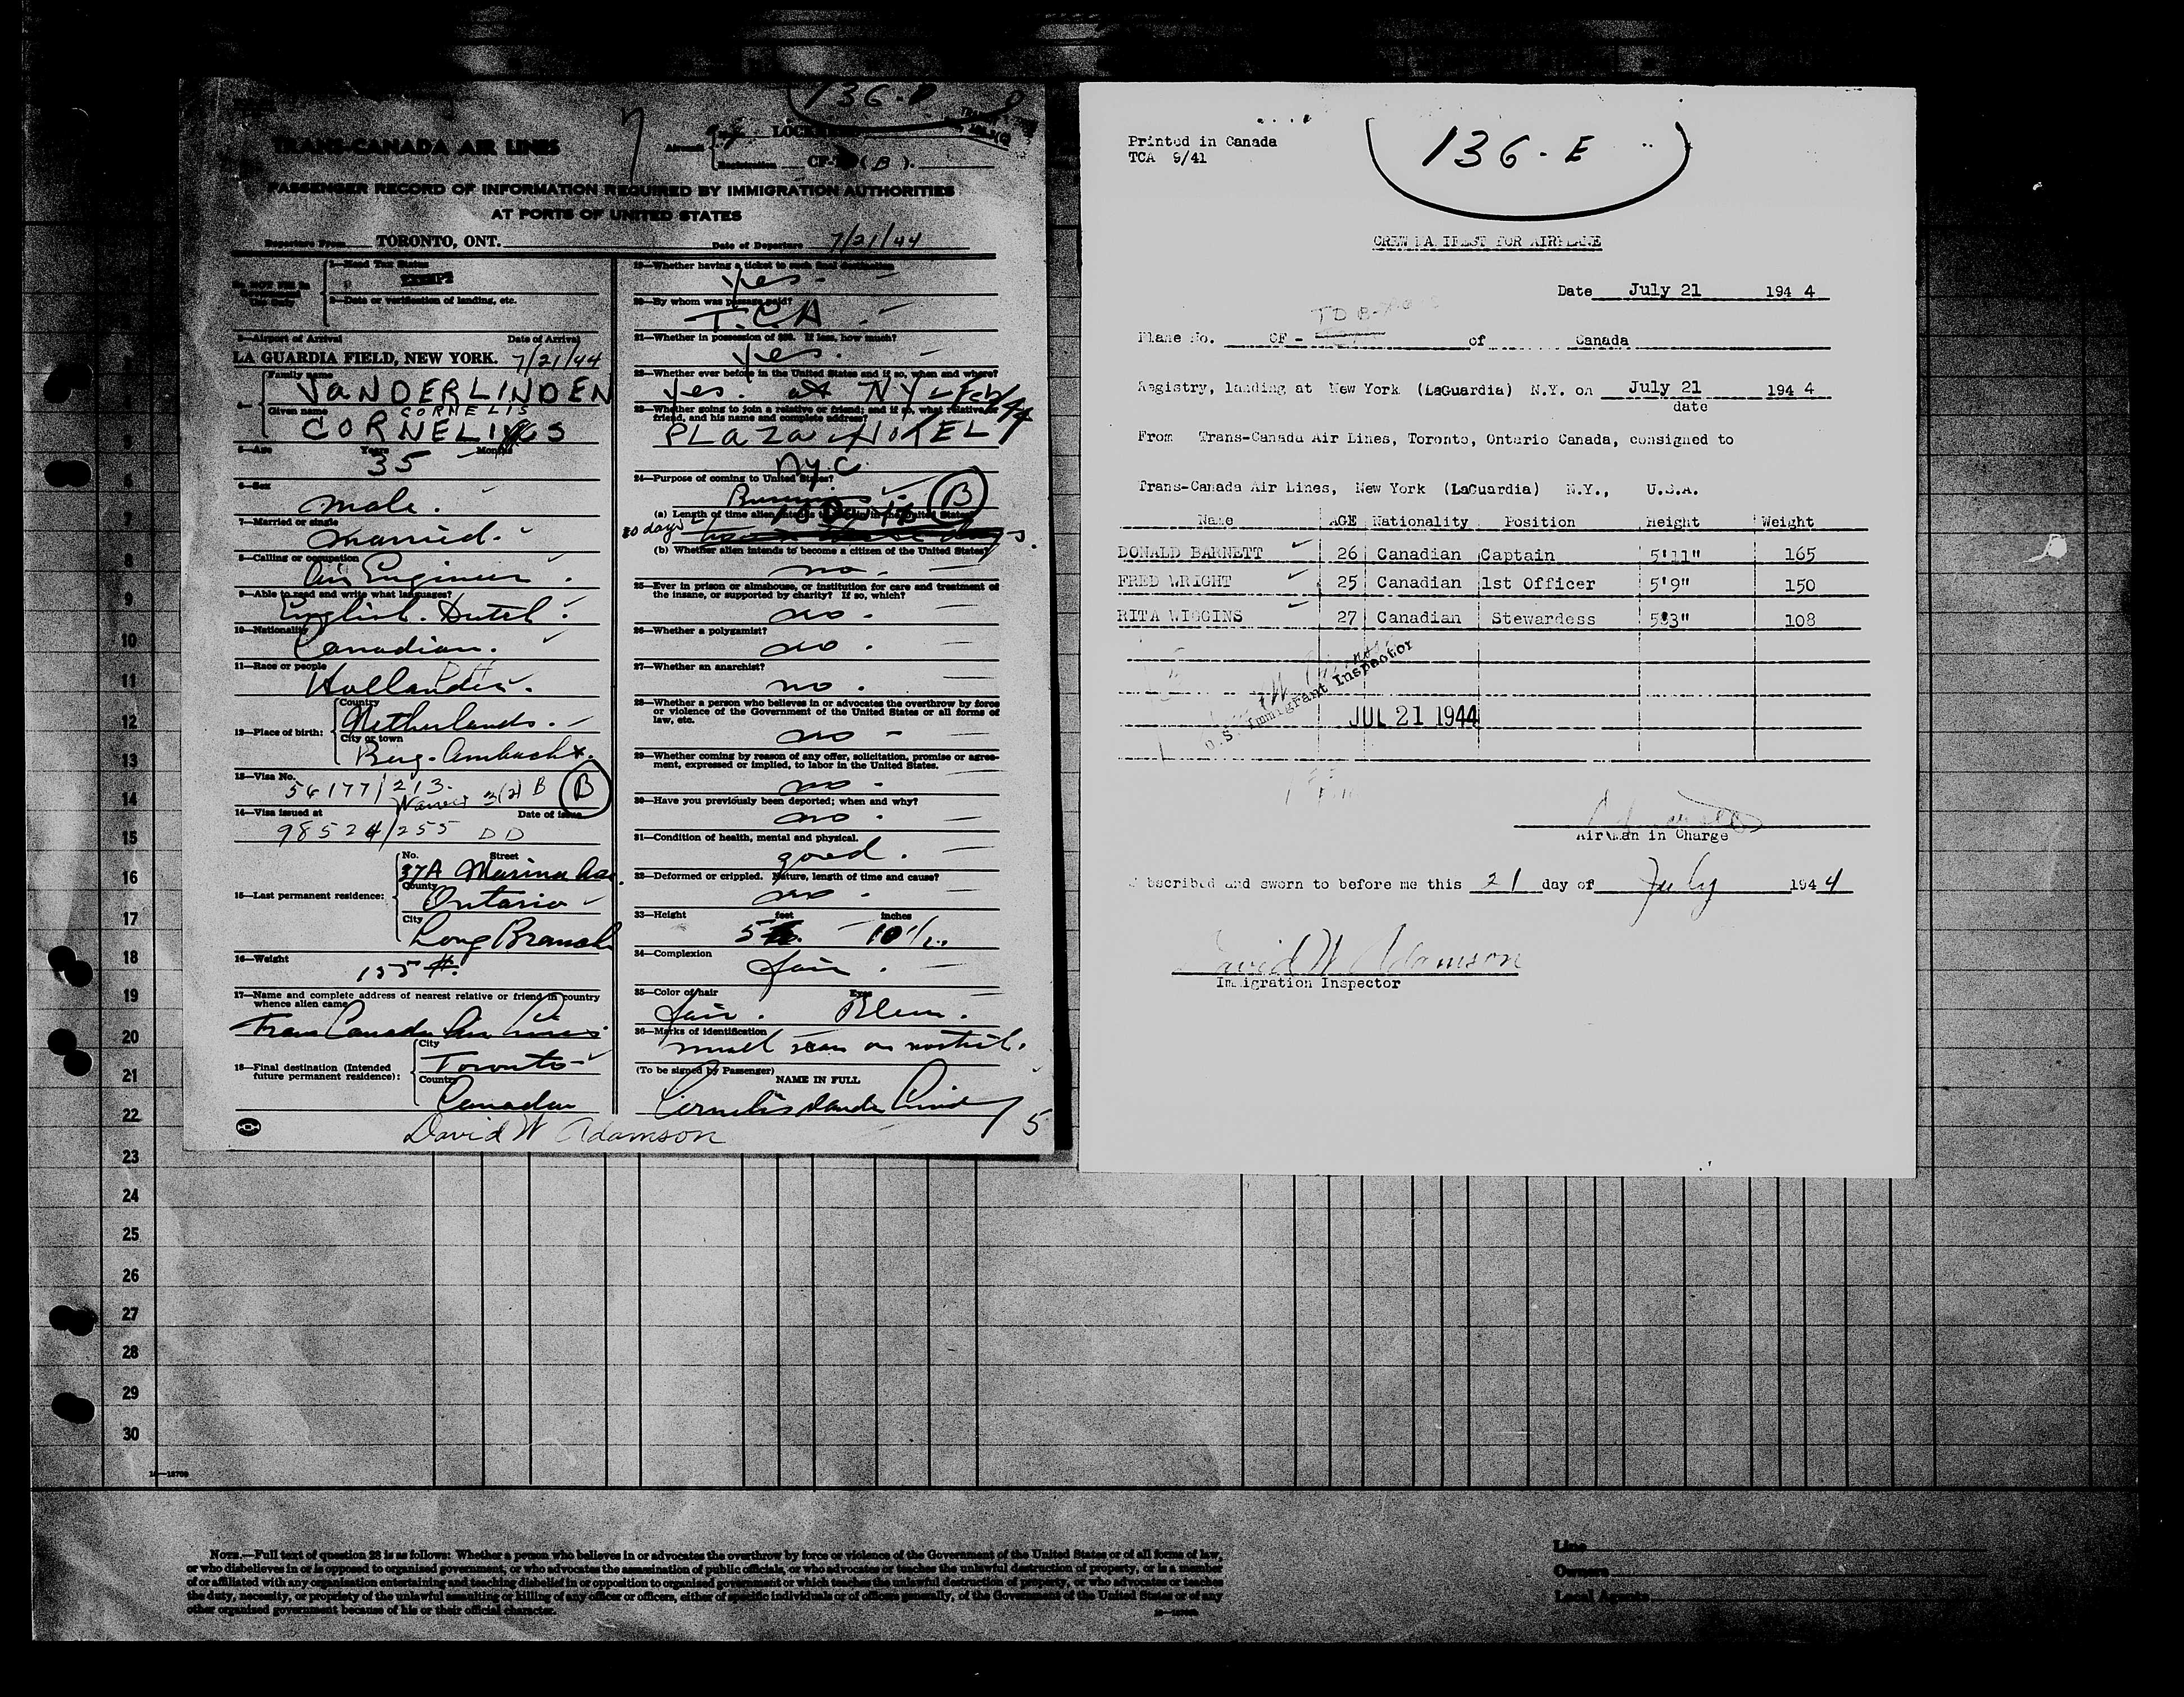 136-D
TRANS-CANADA AIR LINES
Aircraft
Registration CF- (B).
PASSENGER RECORD OF INFORMATION REQUIRED BY IMMIGRATION AUTHORITIES
AT PORTS OF UNITED STATES
Departure From TORONTO, ONT. Date of Departure 7/21/44
1—Head Tax Status
EXEMPT
2—Date or verification of landing, etc.
3—Airport of Arrival Date of Arrival
LA GUARDIA FIELD, NEW YORK. 7/21/44
Family name
VANDERLINDEN
4—
Given name CORNELIS
CORNELI
5—Age Years Months
35
6—Sex
male.
7—Married or single
married.
8—Calling or occupation
Air Engineer.
9—Able to read and write what languages?
English. Dutch.
10—Nationality
Canadian.
11—Race or people
12—Place of birth:
Country
Netherlands.
City or town
Berg-Ambacht.
13—Visa No.
56177/213.
Waiver 3(2) B (B)
14—Visa issued at Date of issue
98524/255 DD
15—Last permanent residence:
No. Street
37A Marina Ave.
County
Ontario
City
Long Branch
16—Weight
155 #.
17—Name and complete address of nearest relative or friend in country
whence alien came
Trans Canada Air Lines
18—Final destination (Intended
future permanent residence):
City
Toronto
Country
Canada
David W Adamson
19—Whether having a ticket to such final destination
yes.
20—By whom was passage paid?
T.C.A
21—Whether in possession of $50. If less, how much?
yes.
22—Whether ever before in the United States and if so, when and where?
yes. at NY Feb/44
23—Whether going to join a relative or friend; and if so, what relative or
friend, and his name and complete address?
PLAZA HOTEL
N.Y.C.
24—Purpose of coming to United States?
Business (B)
(a) Length of time alien intends to remain in the United States
10 days
(b) Whether alien intends to become a citizen of the United States?
no.
25—Ever in prison or almshouse, or institution for care and treatment of
the insane, or supported by charity? If so, which?
no.
26—Whether a polygamist?
no.
27—Whether an anarchist?
no.
28—Whether a person who believes in or advocates the overthrow by force
or violence of the Government of the United States or all forms of
law, etc.
no
29—Whether coming by reason of any offer, solicitation, promise or agree-
ment, expressed or implied, to labor in the United States.
no
30—Have you previously been deported; when and why?
no.
31—Condition of health, mental and physical.
good.
32—Deformed or crippled. Nature, length of time and cause?
no
33—Height feet inches
5 10 1/2
34—Complexion
fair.
35—Color of hair Eyes
fair. Blue.
36—Marks of identification
small scar on nostril.
(To be signed by Passenger)
NAME IN FULL
Cornelis Vander Linden
5
Printed in Canada
TCA 9/41
136-E
CREW MANIFEST FOR AIRPLANE
Date July 21 194 4
Plane No. CF - of Canada
Registry, landing at New York (LaGuardia) N.Y. on July 21 194 4
date
From Trans-Canada Air Lines, Toronto, Ontario Canada, consigned to
Trans-Canada Air Lines, New York (LaGuardia) N.Y., U.S.A.
Name AGE Nationality Position Height Weight
DONALD BARNETT 26 Canadian Captain 5'11" 165
FRED WRIGHT 25 Canadian 1st Officer 5'9" 150
RITA WIGGINS 27 Canadian Stewardess 5'3" 108
U.S. Immigrant Inspector
JUL 21 1944
Airman in Charge
Subscribed and sworn to before me this 21 day of July 194 4
David W Adamson
Immigration Inspector
4
5
6
7
8
9
10
11
12
13
14
15
16
17
18
19
20
21
22
23
24
25
26
27
28
29
30
NOTE.—Full text of question 28 is as follows: Whether a person who believes in or advocates the overthrow by force or violence of the Government of the United States or of all forms of law,
or who disbelieves in or is opposed to organized government, or who advocates the assassination of public officials, or who advocates or teaches the unlawful destruction of property, or is a member
of or affiliated with any organization entertaining and teaching disbelief in or opposition to organized government or which teaches the unlawful destruction of property, or who advocates or teaches
the duty, necessity, or propriety of the unlawful assaulting or killing of any officer or officers, either of specific individuals or of officers generally, of the Government of the United States or of any
other organized government because of his or their official character.
Line
Owners
Local Agents